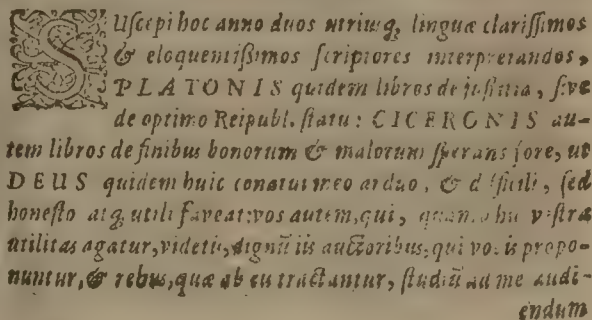 SUſcepi hoc anno duos utriuſq; linguæ clariſſimos
& eloquentiſſimos ſcriptores interpretandos,
PLATONIS quidem libros de juſtitia, ſive
de optimo Reipubl. ſtatu: CICERONIS au-
tem libros de finibus bonorum & malorum ſperans fore, ut
DEUS quidem huic conatui meo arduo, & difficili, ſed
honeſto atq; utili faveat: vos autem, qui, quam hu veſtra
utilitas agatur, videtis, dignũ iis auctoribus, qui vobis propo-
nuntur, & rebus, quæ ab eu tractantur, ſtudiũ ad me audi-
endum